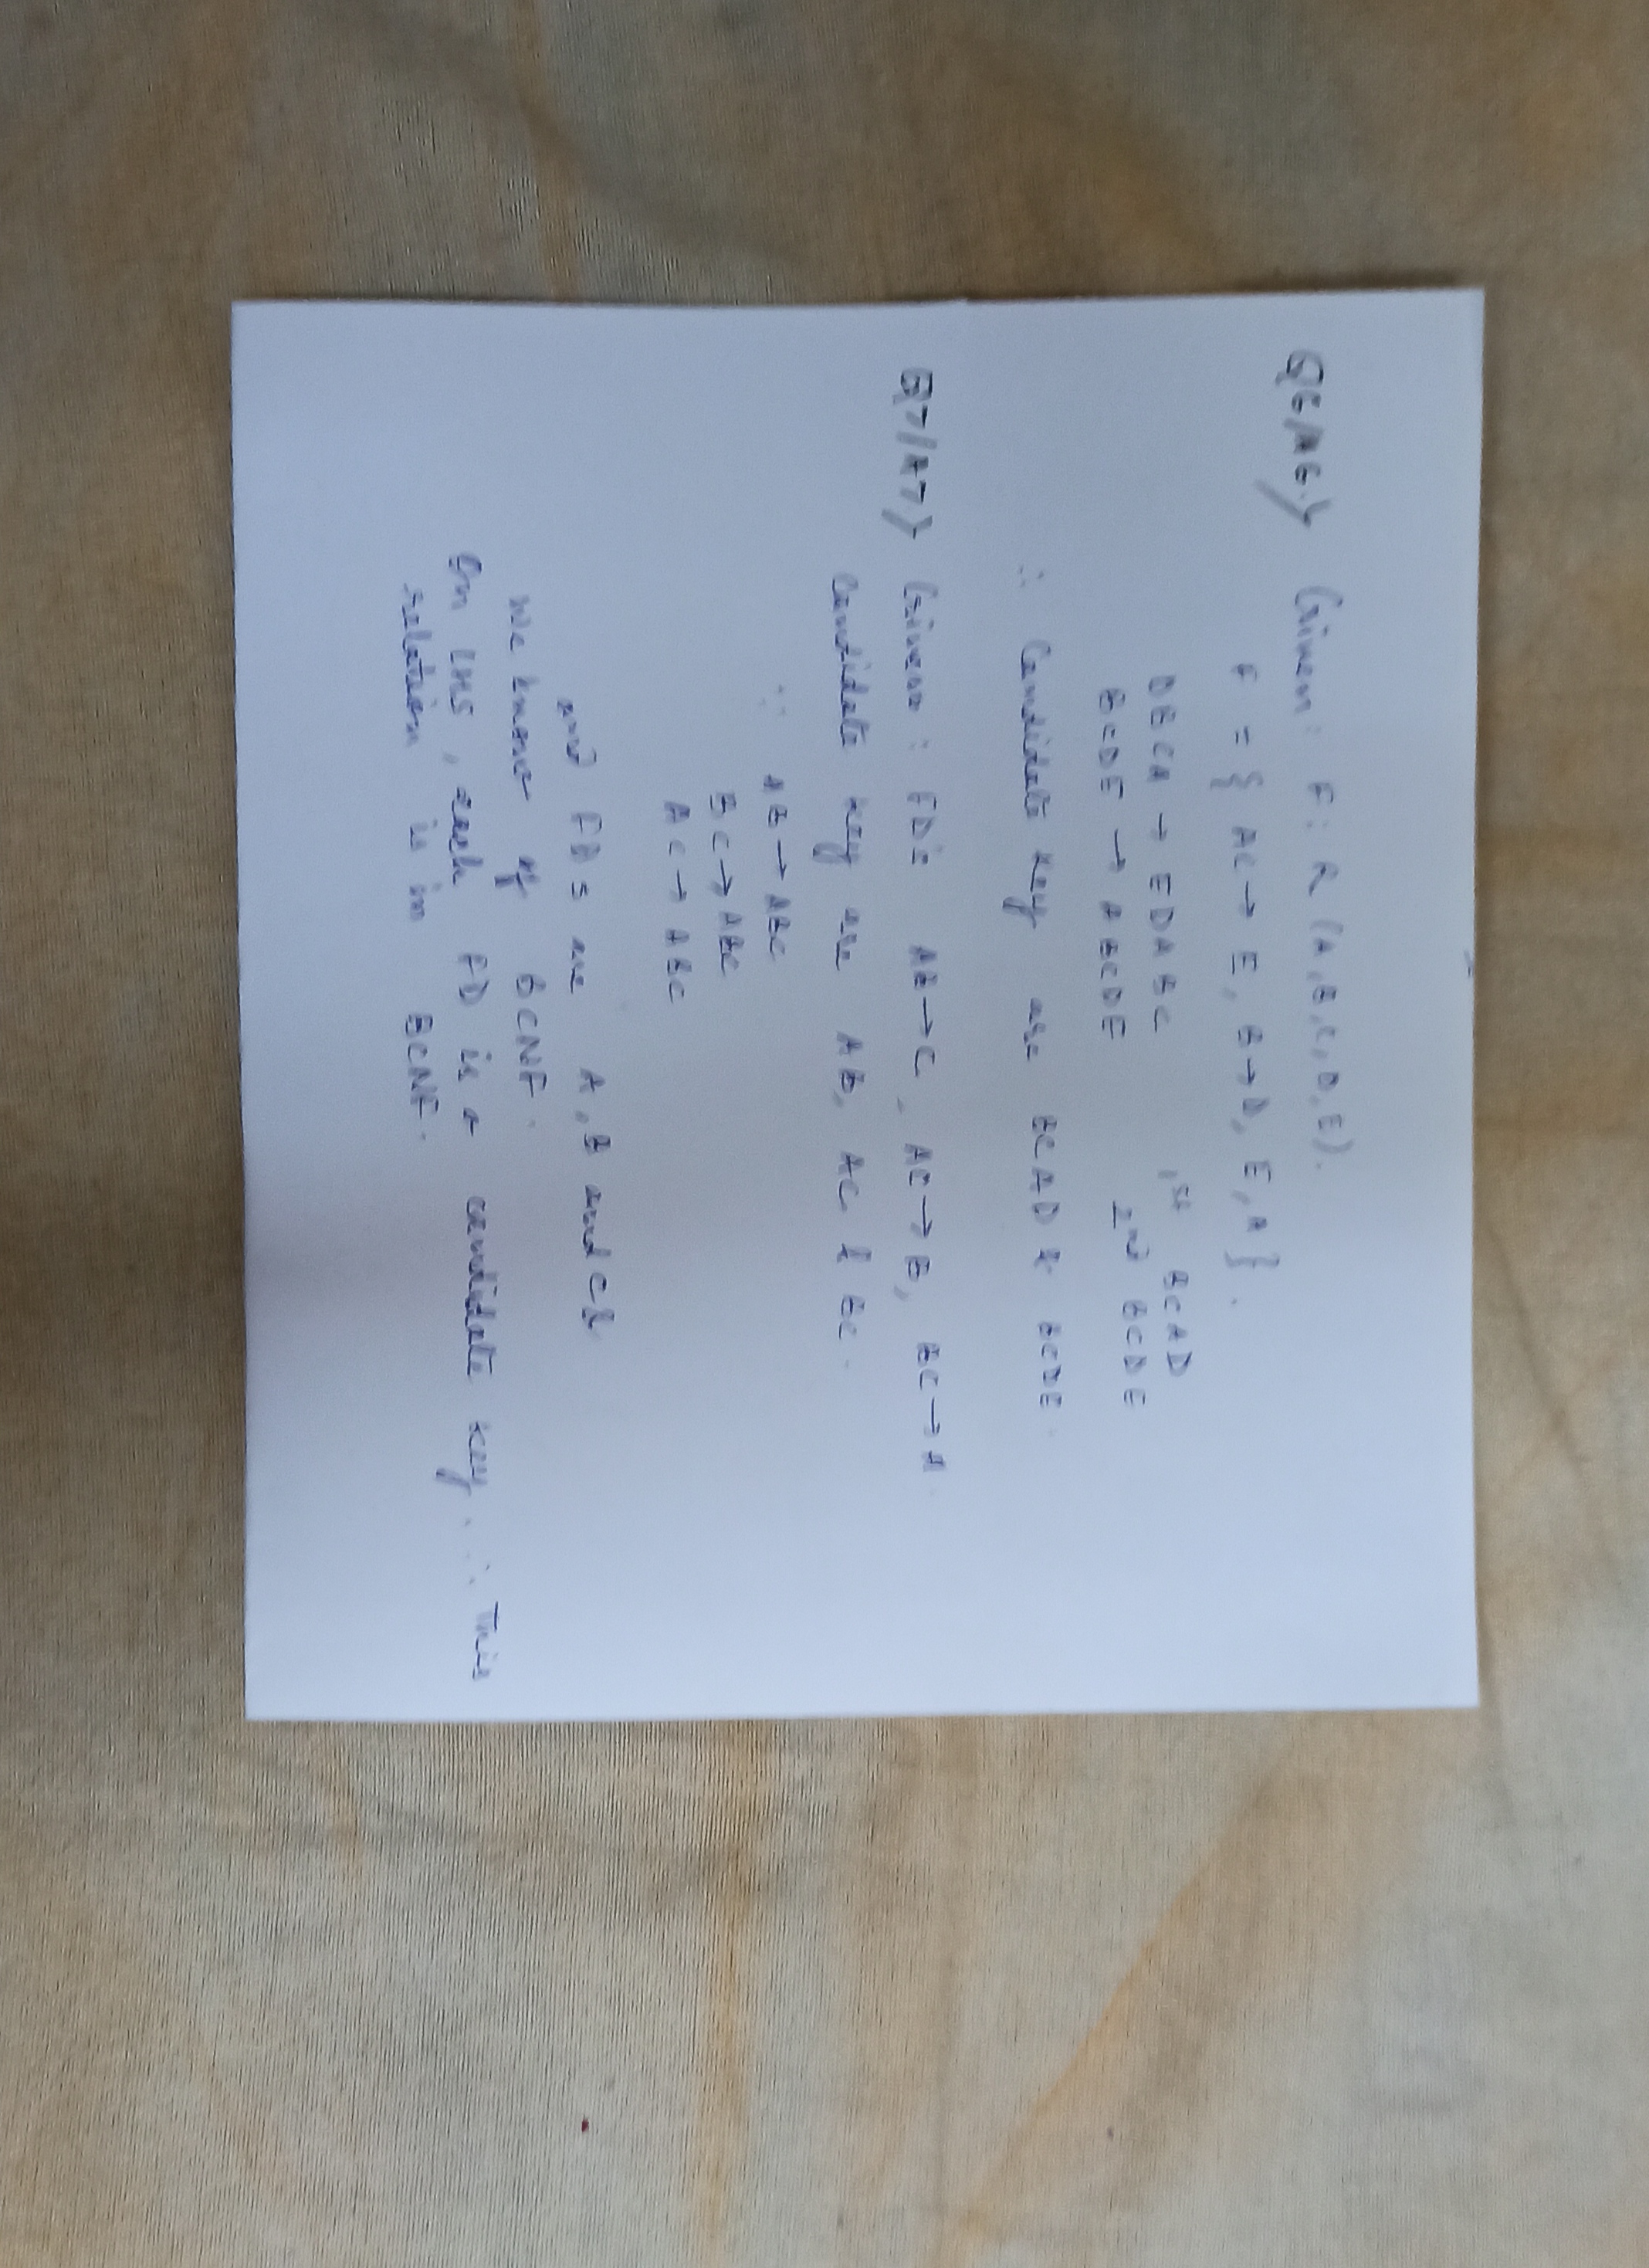 Q6/A6.} Given: F: R (A,B,C,D,E).
F = { AC → E, B→D, E,A}.
DBCA → EDABC 1st BCAD
BCDE → ABCDE 2nd BCDE
∴ Candidate key are BCAD & BCDE.
Q7/A7} Given: FD's AB→C, AC→B, BC→A
Candidate key are AB, AC & BC.
∵ AB→ABC
BC→ABC
AC→ABC
and FDs are A,B and C &
We know of BCNF.
On LHS, each FD is a candidate key. ∴ This
relation is in BCNF.